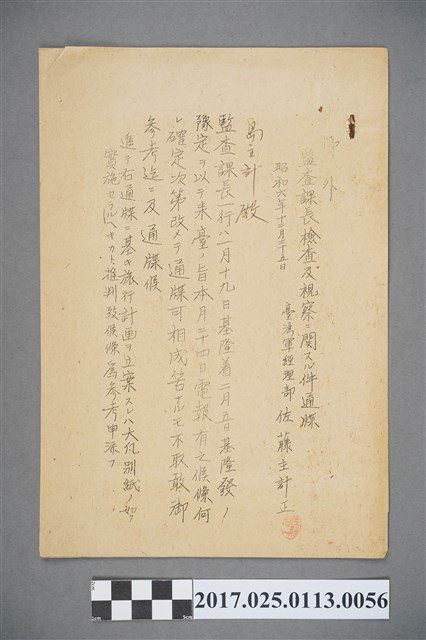 号外
監査課長検査及視察ニ関スル件通牒
昭和六年十二月二十五日
臺湾軍経理部佐藤主計正
島主計殿
監査課長一行八一月十九日基隆着二月五日基隆發ノ
豫定ヲ以テ来臺ノ旨本月二十四日電報有之候條何
レ確定次第改メテ通牒可相成筈ナルモ不取敢御
参考迄ニ及通牒候
進テ右通牒ニ基キ旅行計画ヲ立案スレハ大凡別紙ノ如ク
實施セラルヘキカト推判致候條為参考申添フ
2017.025.0113.0056